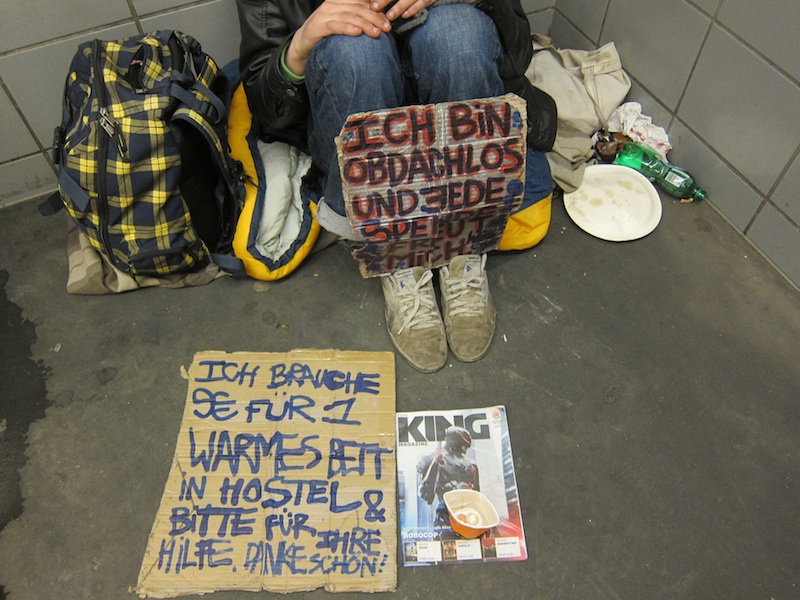 ICH BIN
OBDACHLOS
UND JEDE
MICH
ICH BRAUCHE
FÜR 1
WARMES BETT
IN HOSTEL &
BITTE FÜR IHRE
HILFE. DANKESCHÖN!
KING
MAGAZINE
ROBOCOP